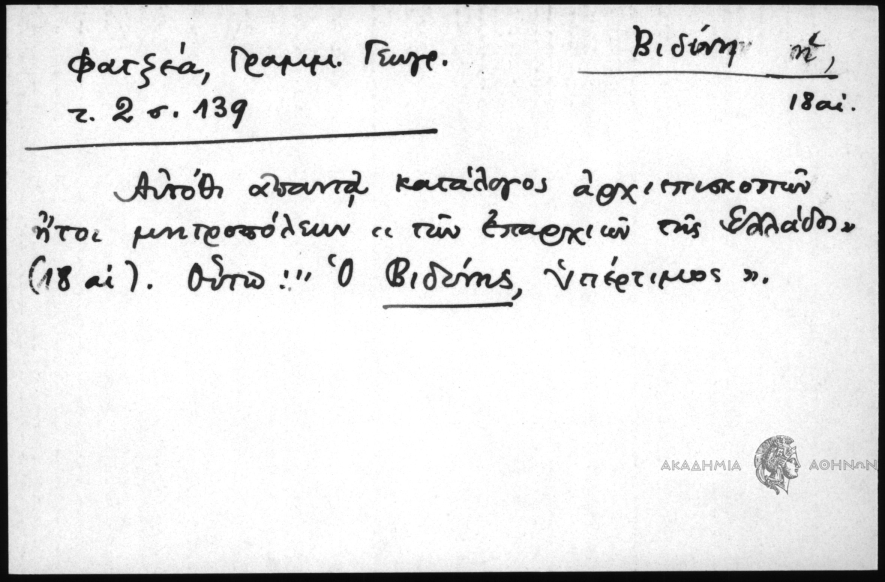 Βιδύνη ἡ,
18 αἰ.
Φατζέα, Γραμμ. Γεωγρ.
τ. 2 σ. 139
Αὐτόθι ἀπαντᾷ κατάλογος ἀρχιεπισκοπῶν
ἤτοι μητροπόλεων «τῶν ἐπαρχιῶν τῆς Ἑλλάδος»
(18 αἰ). Οὕτω: "Ὁ Βιδύνης, ὑπέρτιμος».
ΑΚΑΔΗΜΙΑ ΑΘΗΝΩΝ